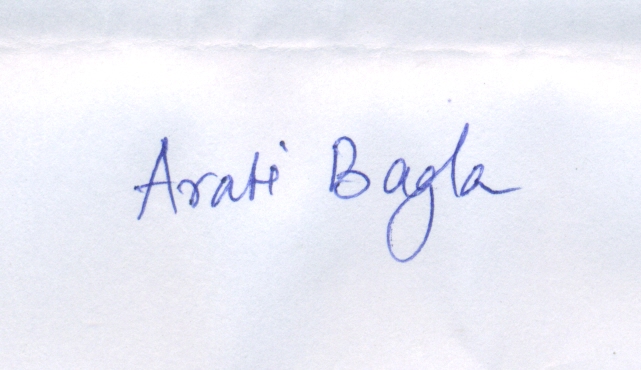 Arati Bagla